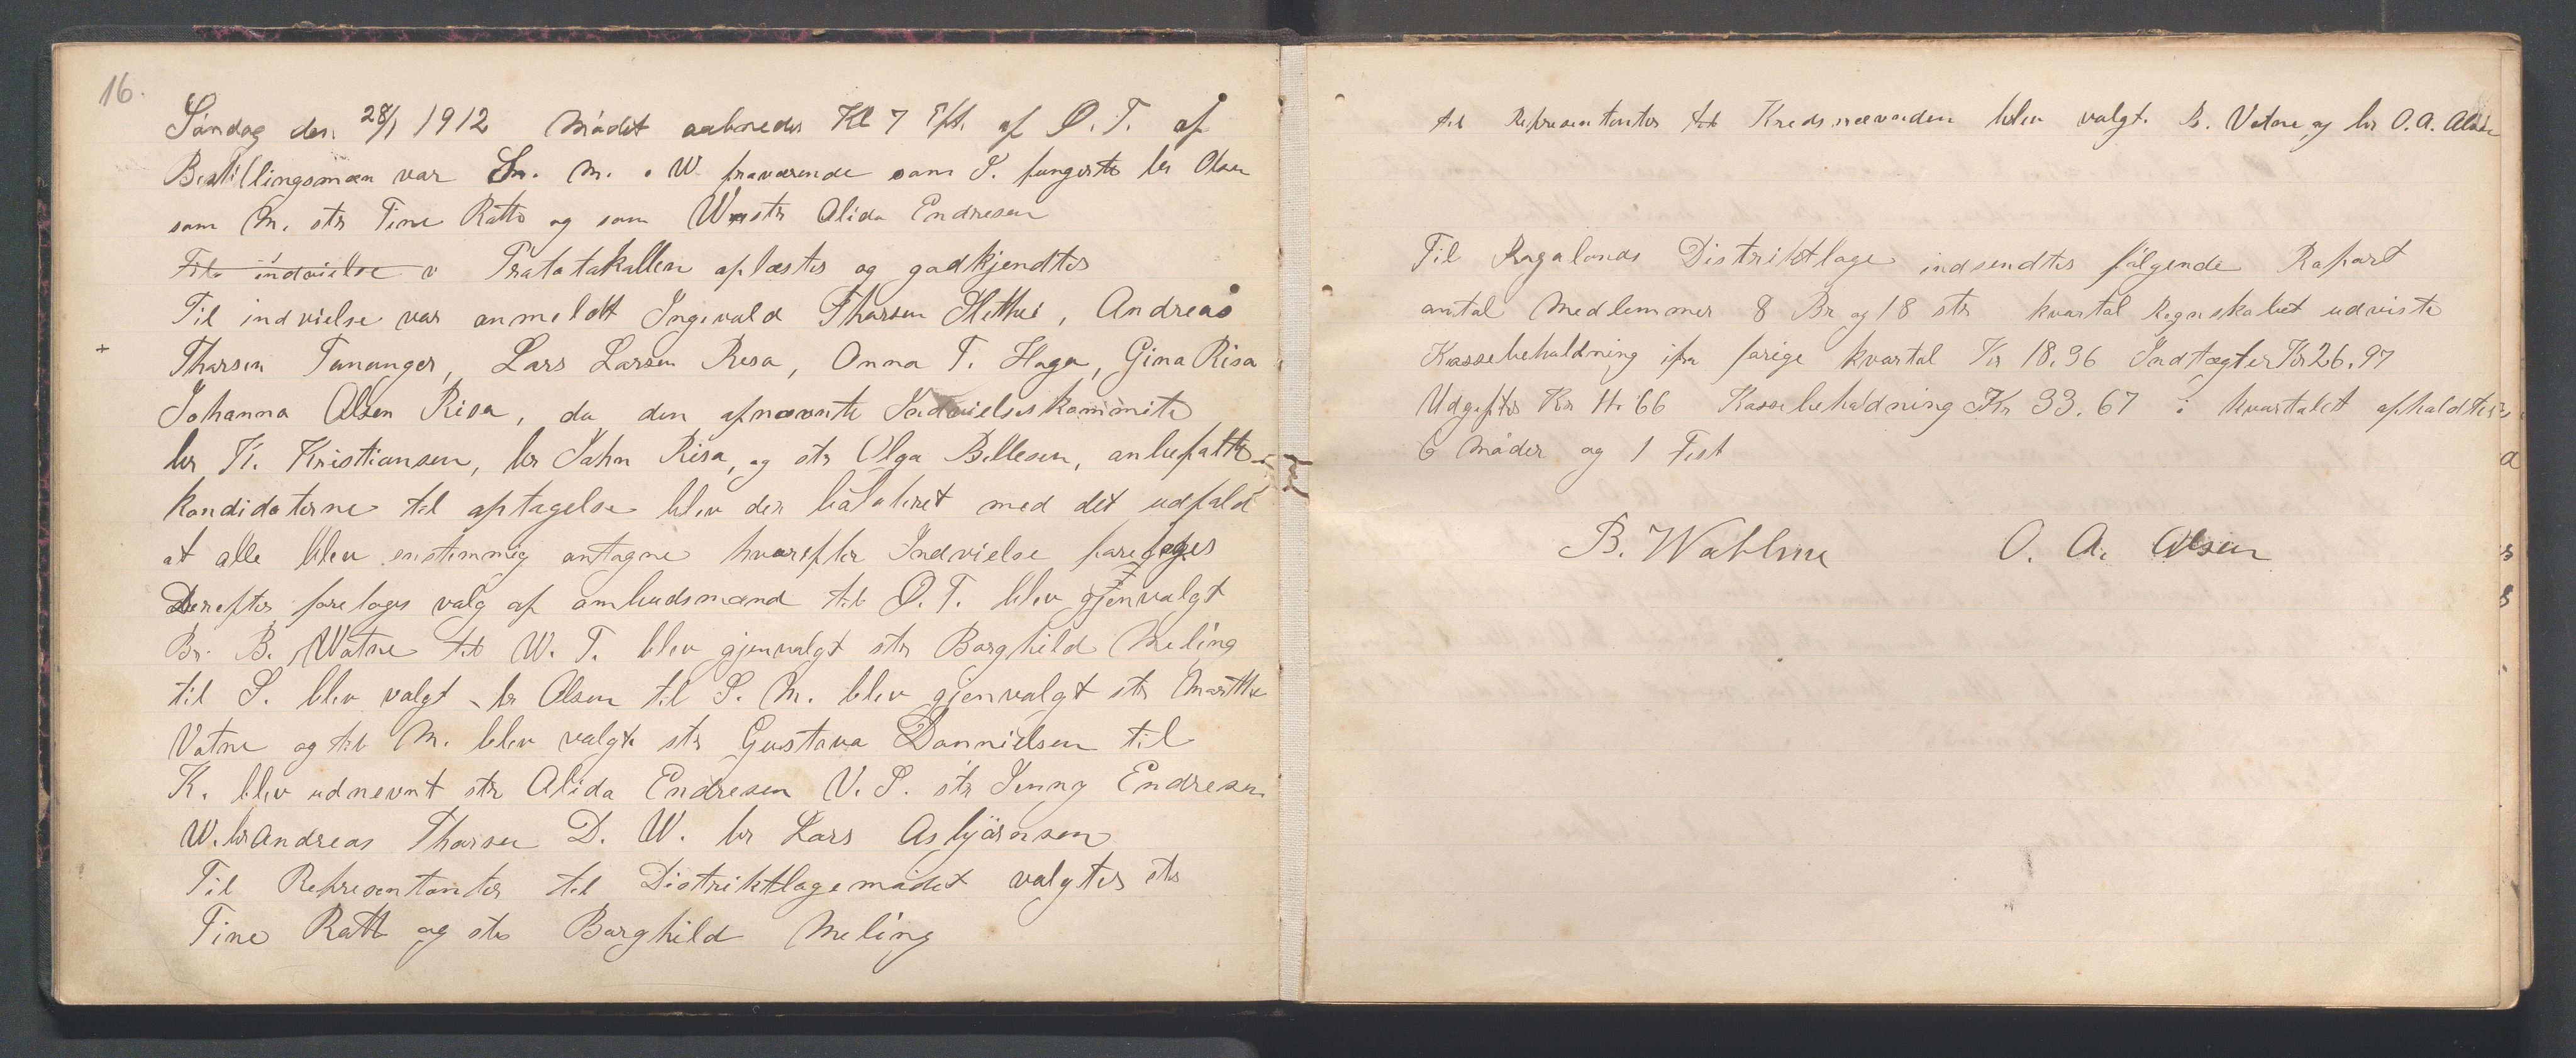 16.
Søndag den 28/1 1912 Mødet aabnedes Kl 7 Eft. af Ø. T. af
Bestillingsmæn var Sm. M. . W. fraværende som S. fungerte br Olsen
som M. str Tine Rott og som W str Alida Endresen
Til indvielse v Protokollen oplæstes og godkjendtes
Til indvielse var anmeldt Ingevald Thorsen Slethei, Andreas
Thorsen Tananger, Lars Larsen Risa, Onna T. Haga, Gina Risa
Johanna Olsen Risa, da den opnævnte Indvielseskommite
br K. Kristiansen, br John Risa, og str Olga Bellesen, anbefalte
kandidaterne til optagelse blev der baloteret med det udfald
at alle blev enstemmig antagne hvorefter Indvielse foretoges
Derefter foretoges valg af ombudsmænd til Ø. T. blev gjenvalgt
Br. B. Watne til W. T. blev gjenvalgt str Borghild Meling
til S. blev valgt br Olsen til S. M. blev gjenvalgt str Marthe
Vatne og til M. blev valgt str Gustava Dannielsen til
K. blev udnevnt str Alida Endresen V. S. str Jenny Endresen
W. br Andreas Thorsen D. W. br Lars Asbjørnsen
Til Representanter til Distriktlogemødet valgtes str
Tine Rott og str Borghild Meling
til Representanter til Kredsnævnden blev valgt B. Vatne og br O. A. Olsen
Til Rogalands Distriktloge indsendtes følgende Raport
antal Medlemmer 8 Br og 18 str kvartal Regnskabet udviste
Kassebehaldning ifra forige kvartal Kr 18.36 Indtægter Kr 26.97
Udgifter Kr 11.66 Kassebehaldning Kr 33.67 i kvartalet afholdtes
6 Møder og 1 Fest
B. Wathne O. A. Olsen